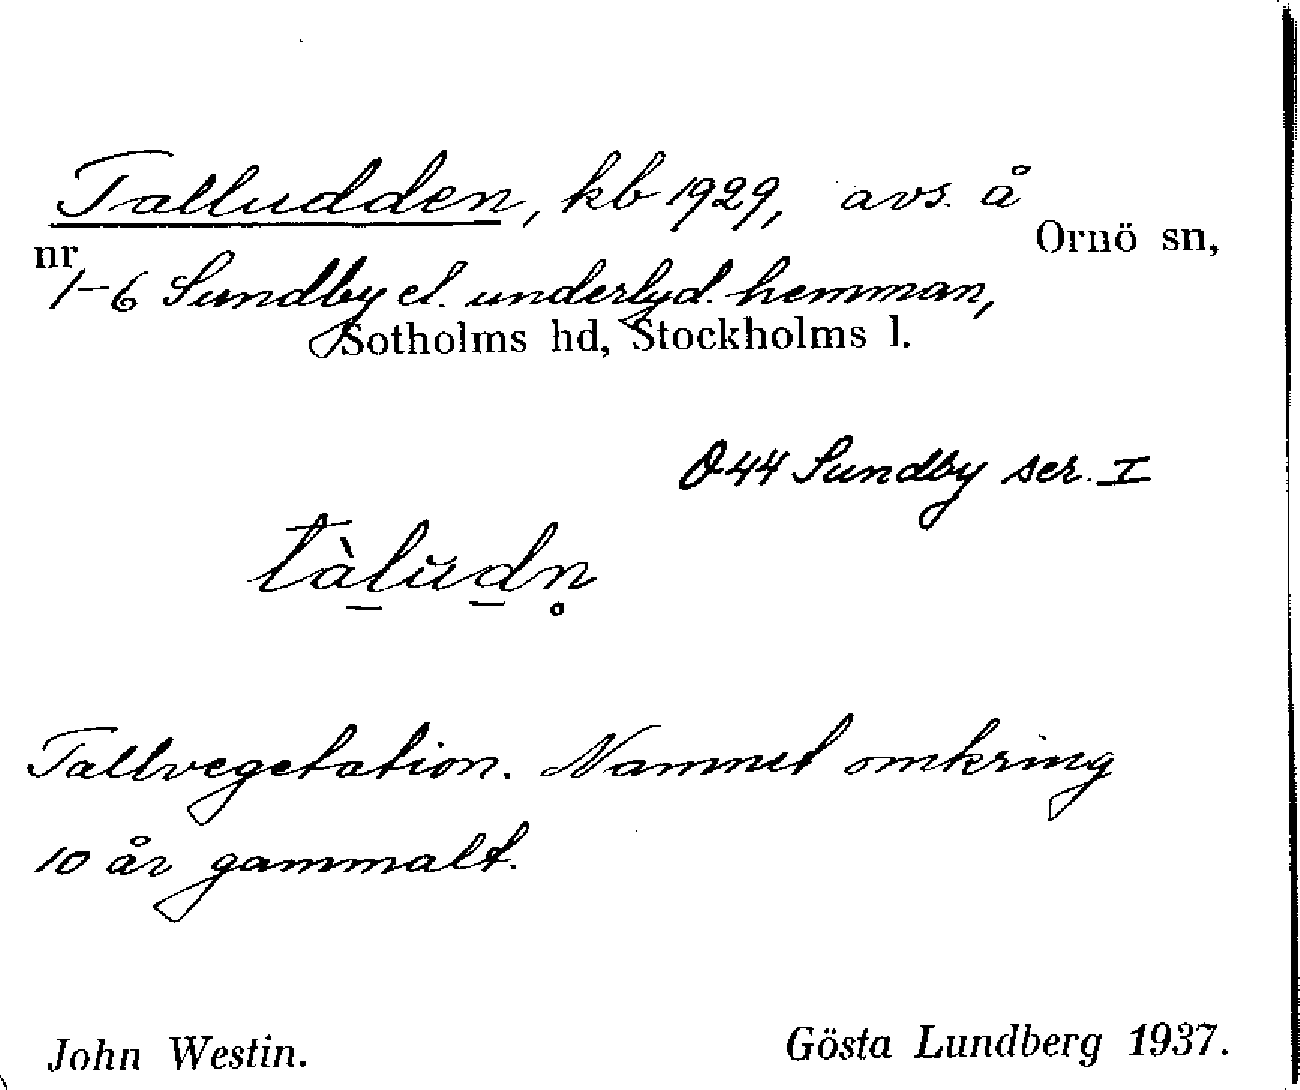 Talludden, kb 1929, avs. å
Ornö sn,
nr
1-6 Sundby el. underlyd. hemman,
Sotholms hd, Stockholms l.
O44 Sundby ser. I
tàlŭdn̥
Tallvegetation. Namnet omkring
10 år gammalt.
John Westin.
Gösta Lundberg 1937.